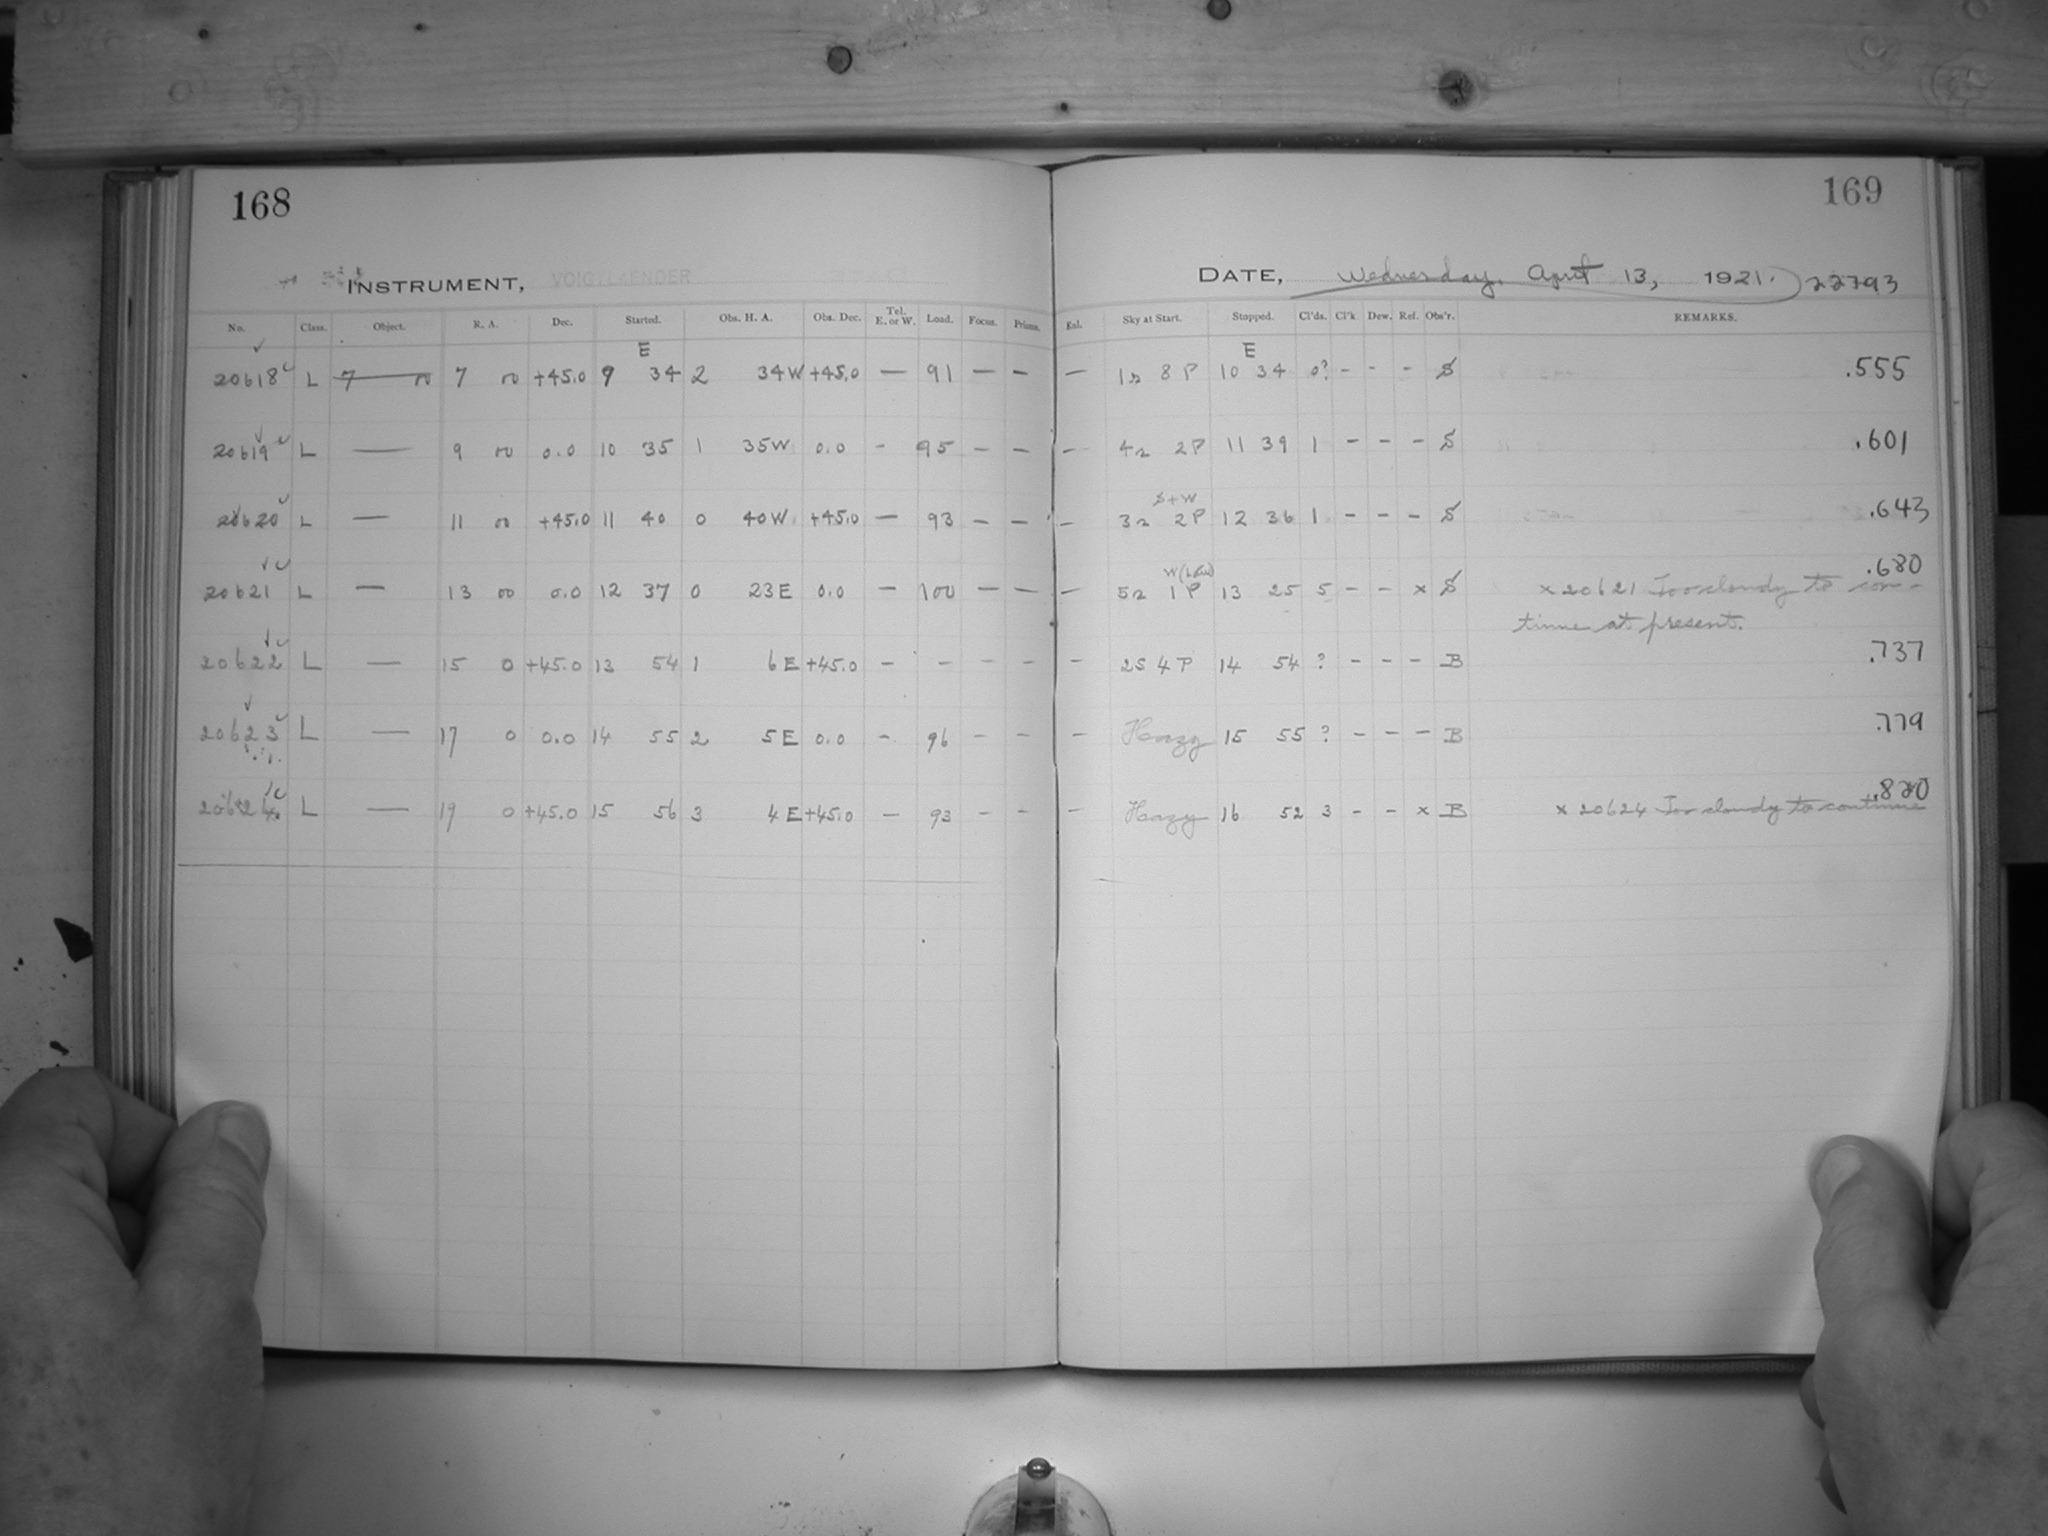 168
169
INSTRUMENT, VOIGTLAENDER
DATE, Wednesday, April 13, 1921. 22793
No. Class. Object. R. A. Dec. Started. Obs. H. A. Obs. Dec. Tel. E. or W. Load. Focus. Prisms. Enl. Sky at Start. Stopped. Cl'ds. Cl'k Dew. Ref. Obs'r. REMARKS.
E E
20618 L 7 00 7 00 +45.0 9 34 2 34W +45.0 — 91 — — — 1s 8P 10 34 0? - - - S .555
20619 L — 9 00 0.0 10 35 1 35W 0.0 - 95 — — — 4s 2P 11 39 1 - - - S .601
S+W
20620 L — 11 00 +45.0 11 40 0 40W +45.0 — 93 — — — 3s 2P 12 36 1 - - - S .643
W(Low) .680
20621 L — 13 00 0.0 12 37 0 23E 0.0 — 100 — — — 5s 1P 13 25 5 - - x S x 20621 Too cloudy to con-
tinue at present.
20622 L — 15 0 +45.0 13 54 1 6E +45.0 - - - - - 2S 4P 14 54 ? - - - B .737
20623 L — 17 0 0.0 14 55 2 5E 0.0 - 96 - - - Hazy 15 55 ? - - - B .779
20624 L — 19 0 +45.0 15 56 3 4E +45.0 — 93 - - - Hazy 16 52 3 - - x B x 20624 Too cloudy to continue .820